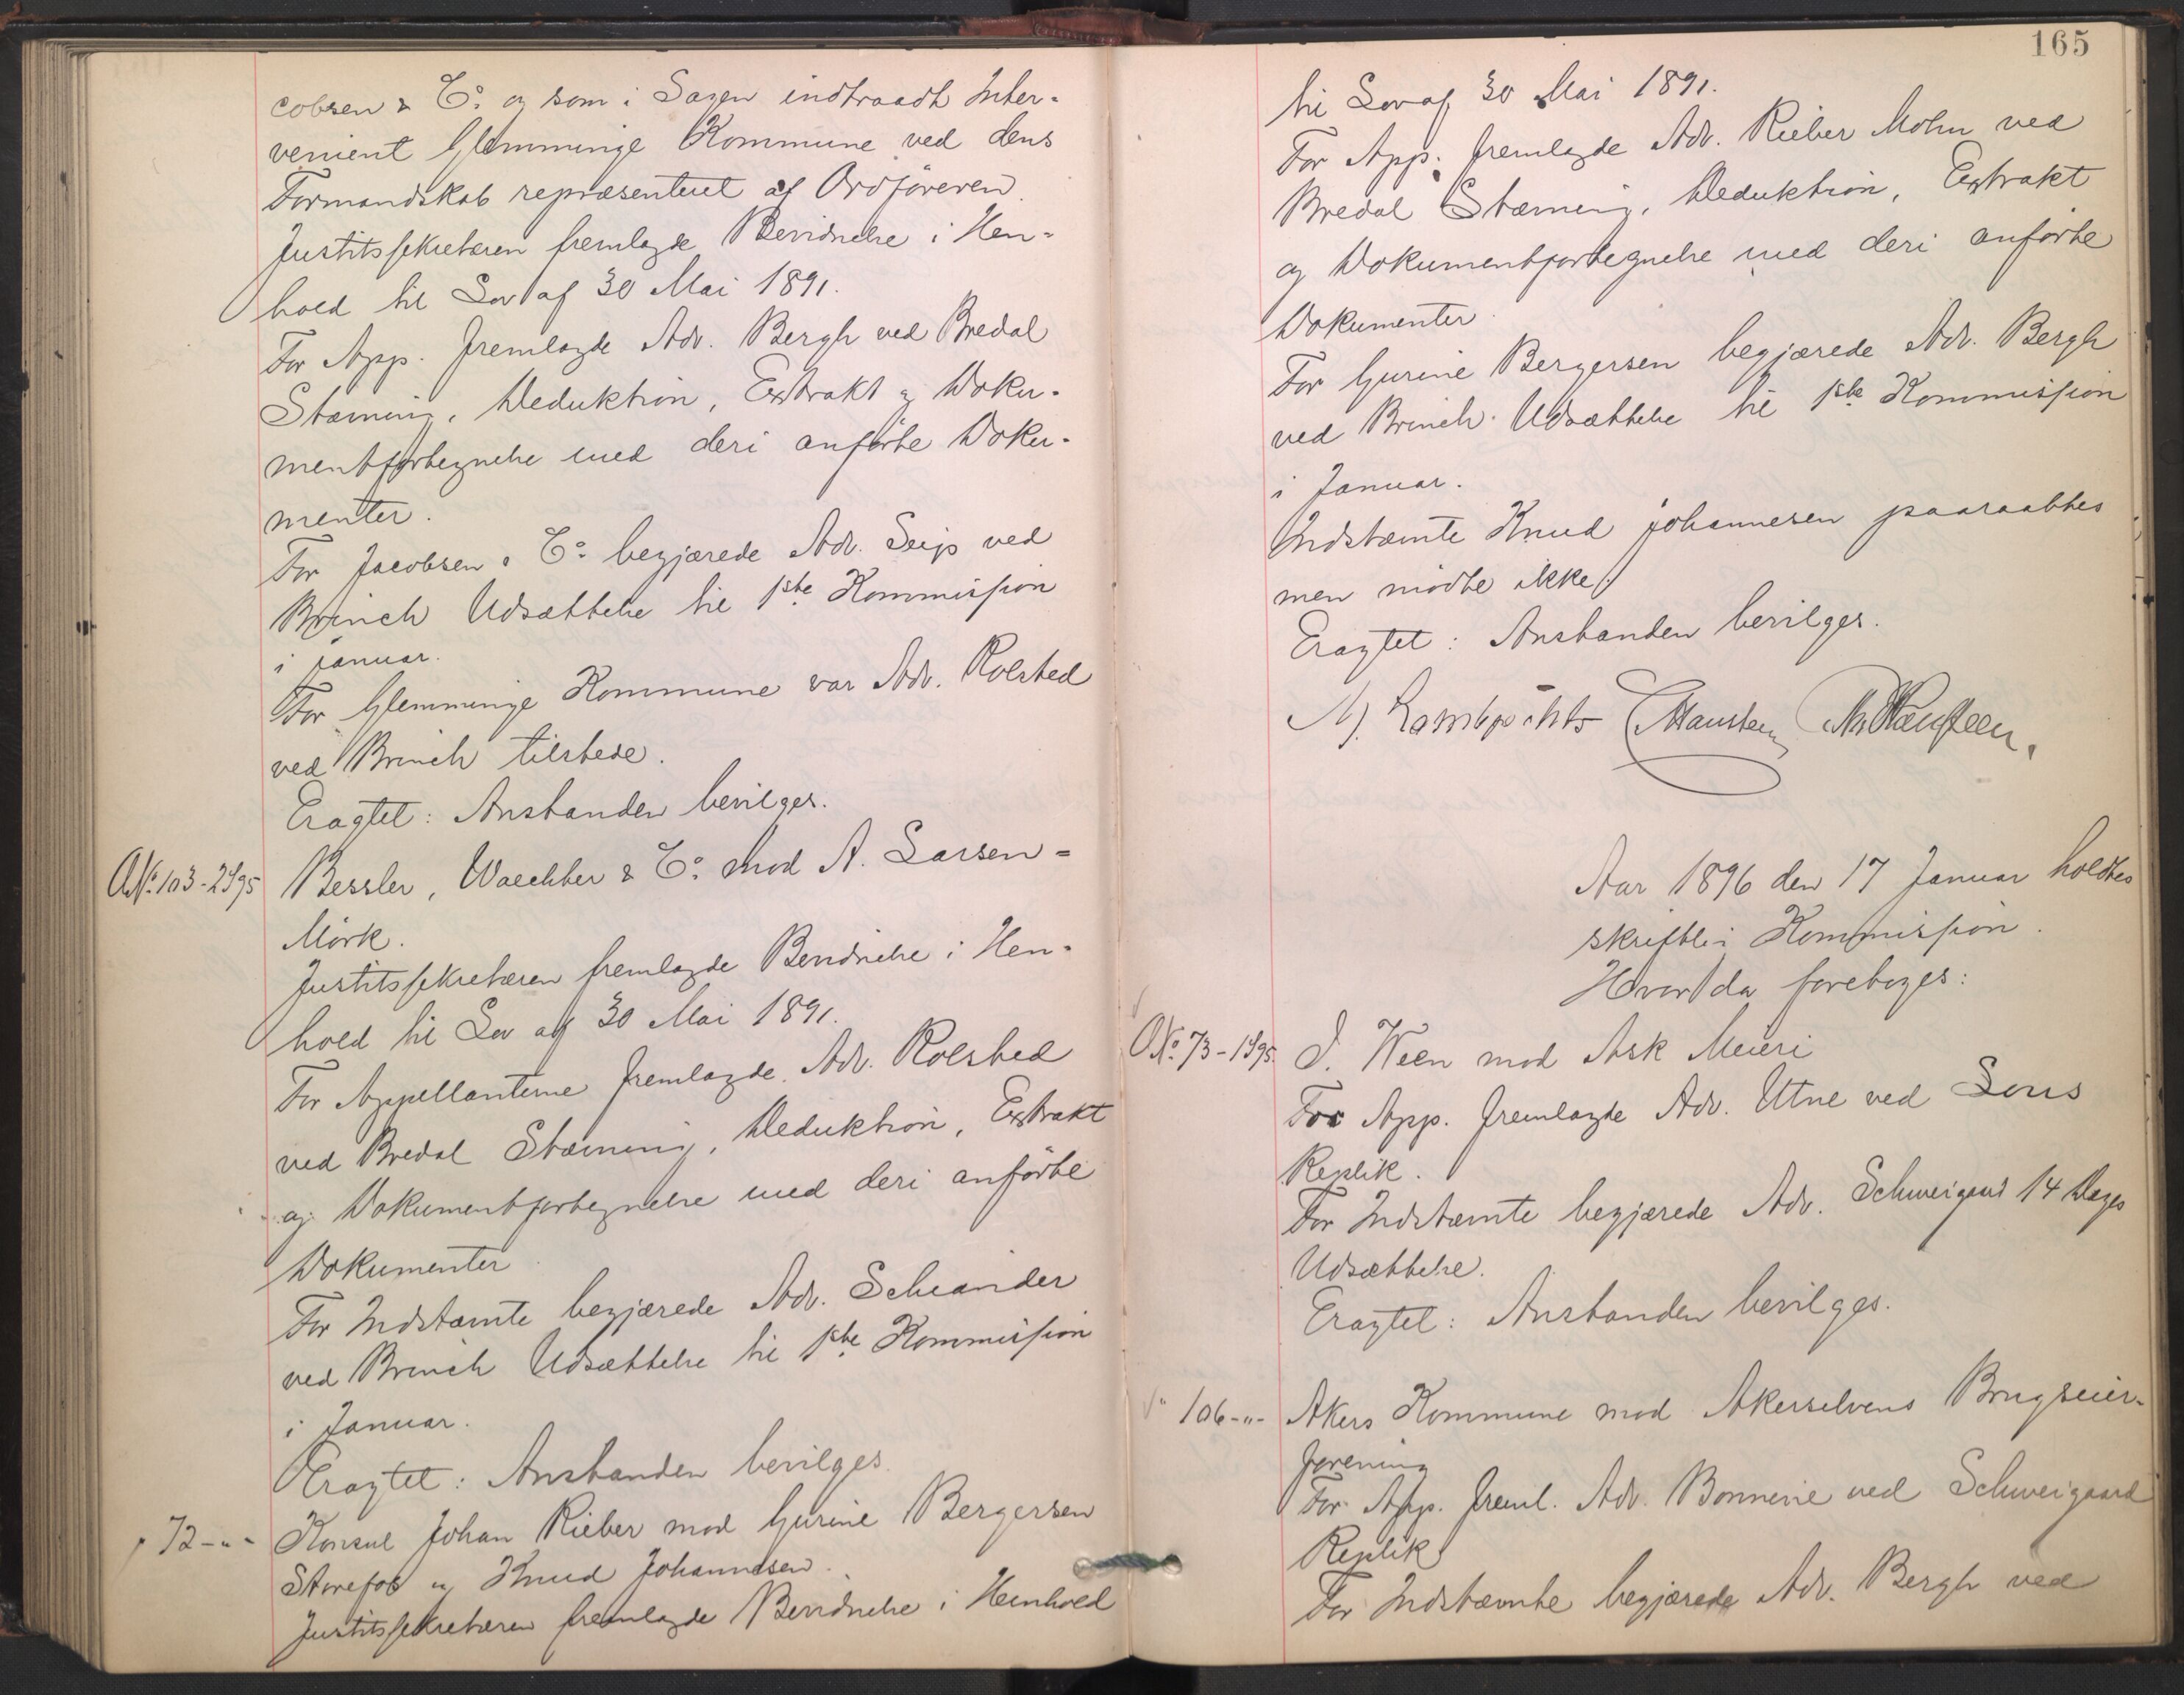 cobsen & Co. og som i Sagen indtraadt Inter-
venient Glemminge Kommune ved dens
Formandskab repræsenteret af Ordföreren.
Justitssekretæren fremlagde Bevidnelse i Hen-
hold til Lov af 30 Mai 1891.
For App. fremlagde Adv. Bergh ved Bredal
Stævning, Deduktion, Extrakt og Doku-
mentfortegnelse med deri anförte Doku-
menter.
For Jacobsen & Co. begjærede Adv. Seip ved
Brinch Udsættelse til 1ste Kommission
i Januar.
For Glemminge Kommune var Adv. Rolsted
ved Brinch tilstede.
Eragtet: Anstanden bevilges.
A No. 103-2/95 Bessler, Waechter & Co. mod A. Larsen=
Mörk.
Justitssekretæren fremlagde Bevidnelse i Hen-
hold til Lov af 30 Mai 1891.
For Appellanterne fremlagde Adv. Rolsted
ved Bredal Stævning, Deduktion, Extrakt
og Dokumentfortegnelse med deri anförte
Dokumenter.
For Indstævnte begjærede Adv. Scheander
ved Brinch Udsættelse til 1ste Kommission
i Januar.
Eragtet: Anstanden bevilges.
" 72-"- Konsul Johan Rieber mod Gurine Bergersen
og Knud Johannesen.
Justitssekretæren fremlagde Bevidnelse i Henhold
165
til Lov af 30 Mai 1891.
For App. fremlagde Adv. Rieber Mohn ved
Bredal Stævning, Deduktion, Extrakt
og Dokumentfortegnelse med deri anförte
Dokumenter.
For Gurine Bergersen begjærede Adv. Bergh
ved Brinch Udsættelse til 1ste Kommission
i Januar.
Indstævnte Knud Johannesen paaraabtes
men mödte ikke.
Eragtet: Anstanden bevilges.
Aar 1896 den 17 Januar holdtes
skriftlig Kommission.
Hvor da foretoges:
A No. 73-1/95 I. Ween mod Ask Meieri
For App. fremlagde Adv. Utne ved Lous
Replik.
For Indstævnte begjærede Adv. Schweigaard 14 Dages
Udsættelse.
Eragtet: Anstanden bevilges.
" 106-"- Akers Kommune mod Akerselvens Brugseier-
forening
For App. freml. Adv. Bonnevie ved Schweigaard
Replik
For Indstævnte begjærede Adv. Bergh ved